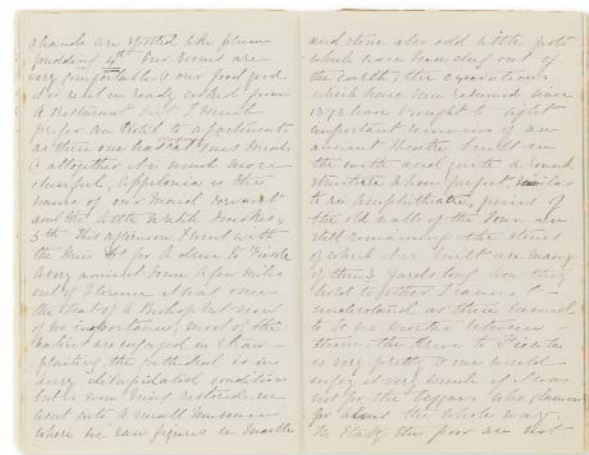 hands are spotted like plum
pudding 4th Our rooms are
very comfortable & our food good
it is sent in ready cooked from
a Restaurant but I much
prefer an Hotel to apartments
as there one has at meal
& altogether it is much more
cheerful, Appolonia is the
name of our maid servant
and the little
5th This afternoon I went with
the for a drive to Fiesole
a very ancient Town a few miles
out of Florence it was once
the seat of a Bishop but now
of no importance, most of the
are engaged in straw
plaiting, the Cathedral is in
a very dilapidated condition
but is now being restored, we
went into a small Museum
where we saw figures in marble
and stone also odd little pots
which have been dug out of
the earth; the excavations
which have been resumed since
1873 have brought to light
important remains of an
ancient Theatre built in
the earth and quite a round
structure & how perfect similar
to an Amphitheatre, pieces of
the old walls of the Town are
still remaining the stones
of which it is built are many
of them 3 yards long how they
hold together I cannot
understand as there seemed
to be no mortar between
them the drive to Fiesole
is very pretty & one would
enjoy it very much if it was
not for the beggars who clamour
for the whole way.
In Italy the poor are not